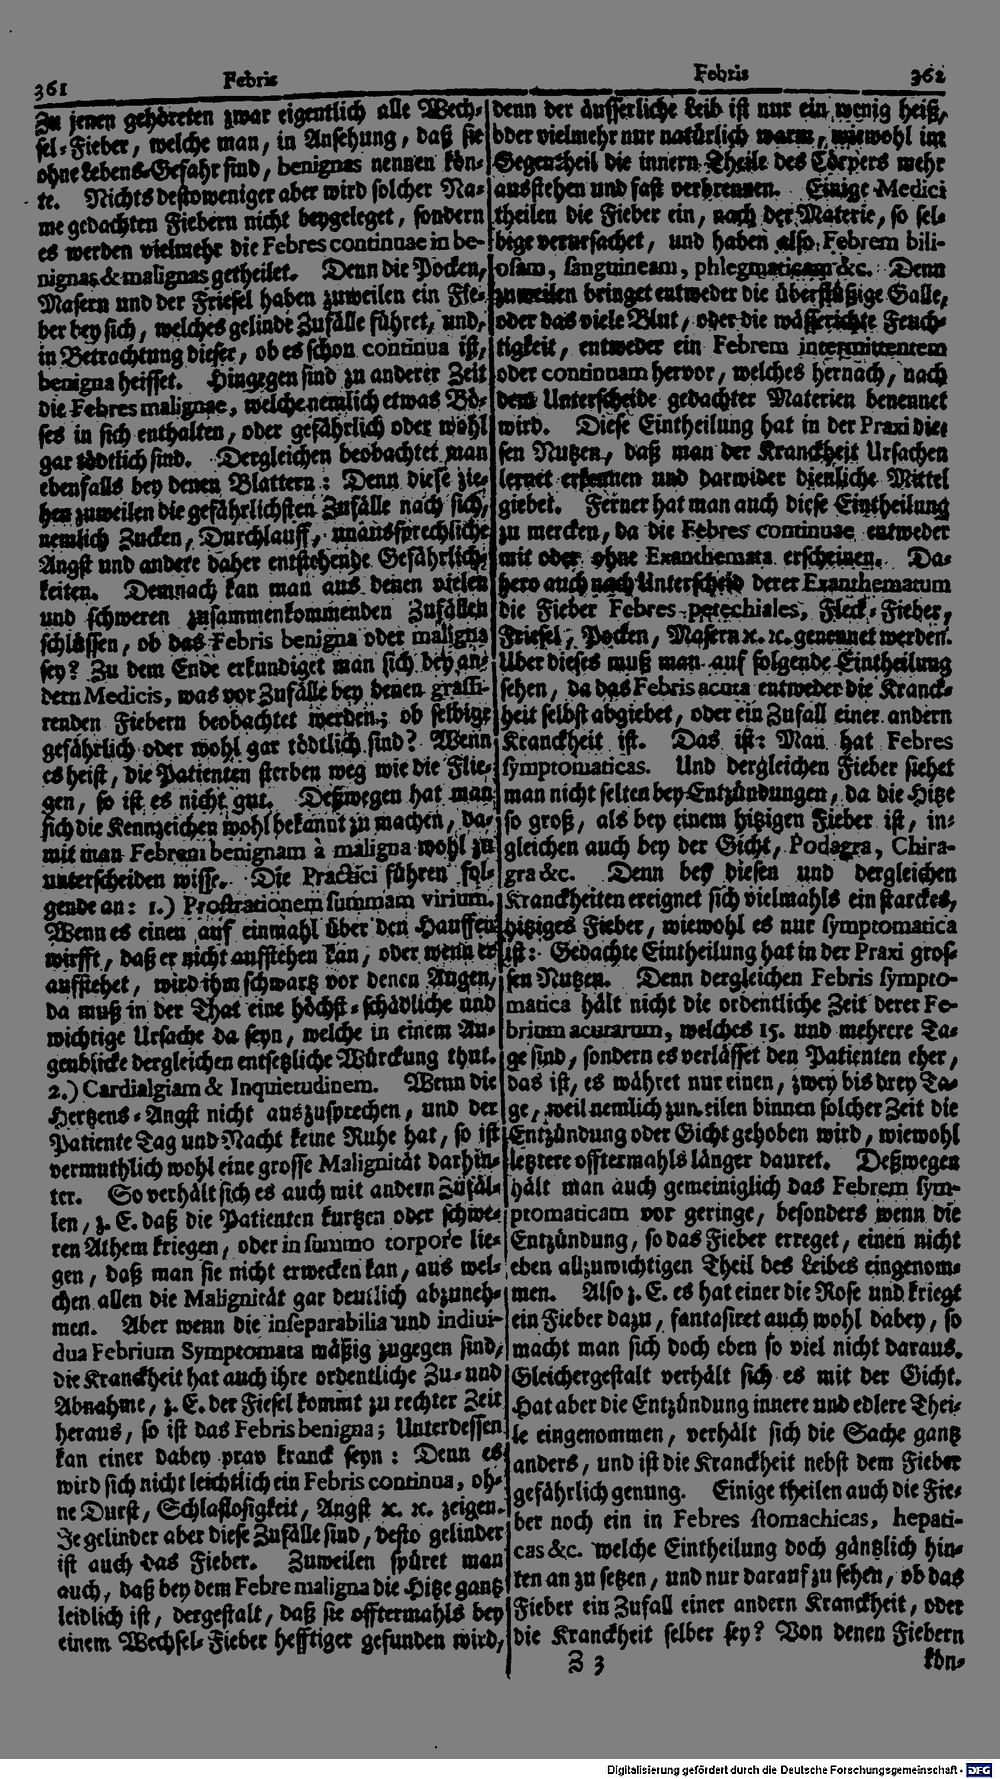 361 Febris
Zu jenen gehöreten zwar eigentlich alle Wech-
sel-Fieber, welche man, in Ansehung, daß sie
ohne Lebens-Gefahr sind, benignas nennen kön-
te. Nichts destoweniger aber wird solcher Na-
me gedachten Fiebern nicht beygeleget, sondern
es werden vielmehr die Febres continuae in be-
nignas & malignas getheilet. Denn die Pocken,
Masern und der Friesel haben zuweilen ein Fie-
ber bey sich, welches gelinde Zufälle führet, und,
in Betrachtung dieser, ob es schon continua ist,
benigna heisset. Hingegen sind zu anderer Zeit
die Febres malignae, welche nemlich etwas Bö-
ses in sich enthalten, oder gefährlich oder wohl
gar tödtlich sind. Dergleichen beobachtet man
ebenfalls bey denen Blattern: Denn diese zie-
hen zuweilen die gefährlichsten Zufälle nach sich,
nemlich Zucken, Durchlauff, unaussprechliche
Angst und andere daher entstehende Gefährlich-
keiten. Demnach kan man aus denen vielen
und schweren zusammenkommenden Zufällen
schlüssen, ob das Febris benigna oder maligna
sey? Zu dem Ende erkundiget man sich bey an-
dern Medicis, was vor Zufälle bey denen grassi-
renden Fiebern beobachtet werden; ob selbige
gefährlich oder wohl gar tödtlich sind? Wenn
es heist, die Patienten sterben weg wie die Flie-
gen, so ist es nicht gut. Deßwegen hat man
sich die Kennzeichen wohl bekannt zu machen, da-
mit man Febrem benignam à maligna wohl zu
unterscheiden wisse. Die Practici führen fol-
gende an: 1.) Prostrationem summam virium.
Wenn es einen auf einmahl über den Hauffen
wirfft, daß er nicht aufstehen kan, oder wenn er
aufstehet, wird ihm schwartz vor denen Augen,
da muß in der That eine höchst-schädliche und
wichtige Ursache da seyn, welche in einem Au-
genblicke dergleichen entsetzliche Würckung thut.
2.) Cardialgiam & Inquietudinem. Wenn die
Hertzens-Angst nicht auszusprechen, und der
Patiente Tag und Nacht keine Ruhe hat, so ist
vermuthlich wohl eine grosse Malignität darhin-
ter. So verhält sich es auch mit andern Zufäl-
len, z. E. daß die Patienten kurtzen oder schwe-
ren Athem kriegen, oder in summo torpore lie-
gen, daß man sie nicht erwecken kan, aus wel-
chen allen die Malignität gar deutlich abzuneh-
men. Aber wenn die inseparabilia und indivi-
dua Febrium Symptomata mäßig zugegen sind,
die Kranckheit hat auch ihre ordentliche Zu- und
Abnahme, z. E. der Fiesel kommt zu rechter Zeit
heraus, so ist das Febris benigna; Unterdessen
kan einer dabey prav kranck seyn: Denn es
wird sich nicht leichtlich ein Febris continua, oh-
ne Durst, Schlaflosigkeit, Angst ꝛc. ꝛc. zeigen.
Je gelinder aber diese Zufälle sind, desto gelinder
ist auch das Fieber. Zuweilen spüret man
auch, daß bey dem Febre maligna die Hitze gantz
leidlich ist, dergestalt, daß sie offtermahls bey
einem Wechsel-Fieber hefftiger gefunden wird,
Febris 362
denn der äusserliche Leib ist nur ein wenig heiß,
oder vielmehr nur natürlich warm, wiewohl im
Gegentheil die innern Theile des Cörpers mehr
ausstehen und fast verbrennen. Einige Medici
theilen die Fieber ein, nach der Materie, so sel-
bige verursachet, und haben also Febrem bili-
osam, sanguineam, phlegmaticam &c. Denn
zuweilen bringet entweder die überflüßige Galle,
oder das viele Blut, oder die wässerichte Feuch-
tigkeit, entweder ein Febrem intermittentem
oder continuam hervor, welches hernach, nach
dem Unterscheide gedachter Materien benennet
wird. Diese Eintheilung hat in der Praxi die-
sen Nutzen, daß man der Kranckheit Ursachen
lernet erkennen und darwider dienliche Mittel
giebet. Ferner hat man auch diese Eintheilung
zu mercken, da die Febres continuae entweder
mit oder ohne Exanthemata erscheinen. Da-
hero auch nach Unterscheid derer Exanthematum
die Fieber Febres petechiales, Fleck-Fieber,
Friesel, Pocken, Masern ꝛc. ꝛc. genennet werden.
Uber dieses muß man auf folgende Eintheilung
sehen, da das Febris acuta entweder die Kranck-
heit selbst abgiebet, oder ein Zufall einer andern
Kranckheit ist. Das ist: Man hat Febres
symptomaticas. Und dergleichen Fieber siehet
man nicht selten bey Entzündungen, da die Hitze
so groß, als bey einem hitzigen Fieber ist, in-
gleichen auch bey der Gicht, Podagra, Chira-
gra &c. Denn bey diesen und dergleichen
Kranckheiten ereignet sich vielmahls ein starckes,
hitziges Fieber, wiewohl es nur symptomatica
ist: Gedachte Eintheilung hat in der Praxi gros-
sen Nutzen. Denn dergleichen Febris sympto-
matica hält nicht die ordentliche Zeit derer Fe-
brium acutarum, welches 15. und mehrere Ta-
ge sind, sondern es verlässet den Patienten eher,
das ist, es währet nur einen, zwey bis drey Ta-
ge, weil nemlich zuweilen binnen solcher Zeit die
Entzündung oder Gicht gehoben wird, wiewohl
letztere offtermahls länger dauret. Deßwegen
hält man auch gemeiniglich das Febrem sym-
ptomaticam vor geringe, besonders wenn die
Entzündung, so das Fieber erreget, einen nicht
eben allzuwichtigen Theil des Leibes eingenom-
men. Also z. E. es hat einer die Rose und kriegt
ein Fieber dazu, fantasiret auch wohl dabey, so
macht man sich doch eben so viel nicht daraus.
Gleichergestalt verhält sich es mit der Gicht.
Hat aber die Entzündung innere und edlere Thei-
le eingenommen, verhält sich die Sache gantz
anders, und ist die Kranckheit nebst dem Fieber
gefährlich genung. Einige theilen auch die Fie-
ber noch ein in Febres stomachicas, hepati-
cas &c. welche Eintheilung doch gäntzlich hin-
ten an zu setzen, und nur darauf zu sehen, ob das
Fieber ein Zufall einer andern Kranckheit, oder
die Kranckheit selber sey? Von denen Fiebern
Z 3 kön-
Digitalisierung gefördert durch die Deutsche Forschungsgemeinschaft - DFG